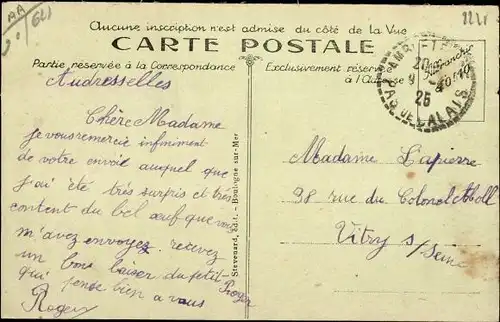 AA
621
2211
Aucune inscription n'est admise du côté de la Vue
CARTE POSTALE
Partie réservée à la Correspondance
Exclusivement réservé à l'Adresse
PAS DE CALAIS
25
Audresselles
Chère Madame
je vous remercie infiniment
de votre envoi auquel que
j'ai été très surpris et très
content du bel œuf que vous
m'avez envoyez. recevez
un bon baiser du petit Roger
qui pense bien a vous
Roger
Stevenard, édit. - Boulogne-sur-Mer
Madame Lapierre
98 rue du Colonel Moll
Vitry s/
Seine